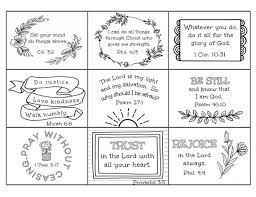 Set your mind
on things above.
Col. 3:2
I can do all things
through Christ who
gives me strength.
Phil. 4:13
Whatever you do,
do it all for the
glory of God.
1 Cor. 10:31
Do justice.
Love kindness.
Walk humbly.
Micah 6:8
The Lord is my light
and my salvation. So
why should I be afraid?
Psalm 27:1
BE STILL
and know
that I am God.
Psalm 46:10
PRAY WITHOUT CEASING
1 Thes. 5:17
TRUST
in the Lord with
all your heart.
Proverbs 3:5
REJOICE
in the Lord
always.
Phil. 4:4